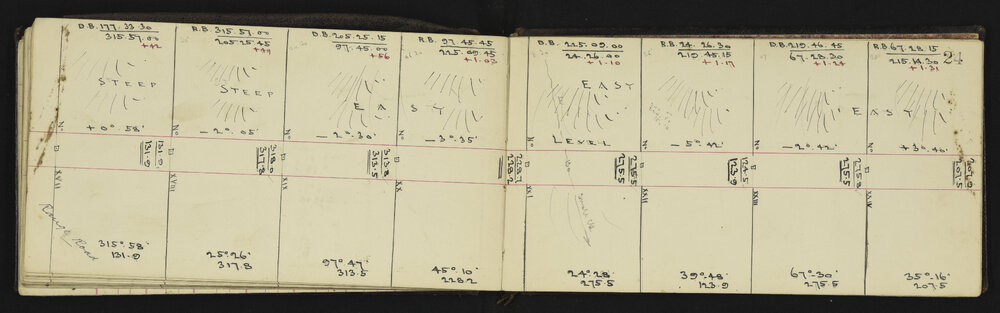 D.B. 177.33.30
315.57.00
+42
STEEP
N°
+0°.58'
131.9
131.9
XVII
Rough Road
315°.58'
131.9
R.B. 315.57.00
205.25.45
+49
STEEP
N°
-2°.05'
318.0
317.8
XVIII
25°.26'
317.8
D.B. 205.25.15
97.45.00
+56
EASY
N°
-2°.30'
313.8
313.5
XIX
97°.47'
313.5
R.B. 97.45.45
225.09.45
+1.03
N°
-3°.35'
228.7
228.2
XX
45°.10'
228.2
D.B. 225.09.00
24.26.00
+1.10
EASY
N°
LEVEL
275.5
275.5
XXI
24°.28'
275.5
R.B. 24.26.30
219.45.15
+1.17
N°
-5°.42'
124.5
123.9
XXII
39°.48'
123.9
D.B. 219.46.45
67.28.30
+1.24
EASY
N°
-2°.42'
275.8
275.5
XXIII
67°.30'
275.5
R.B. 67.28.15
215.14.30
+1.31
24
N°
+3°.40'
207.5
XXIV
35°.16'
207.5